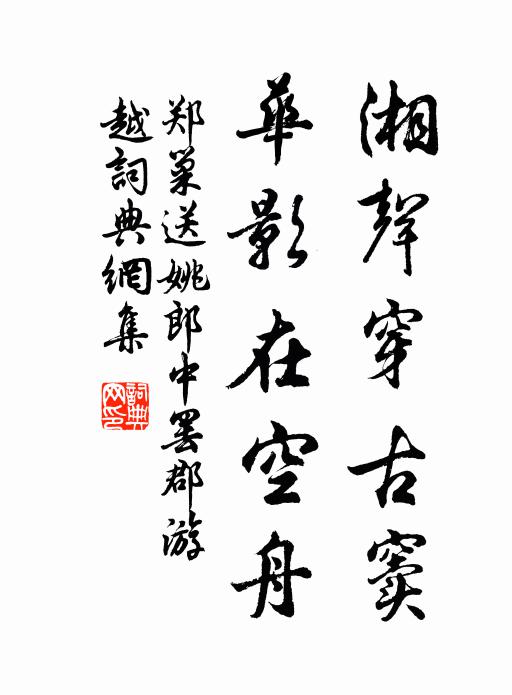 湘聲穿古竇
華影在空舟
郑巢送姚郎中罢郡游
越詞典網集
詞典网印